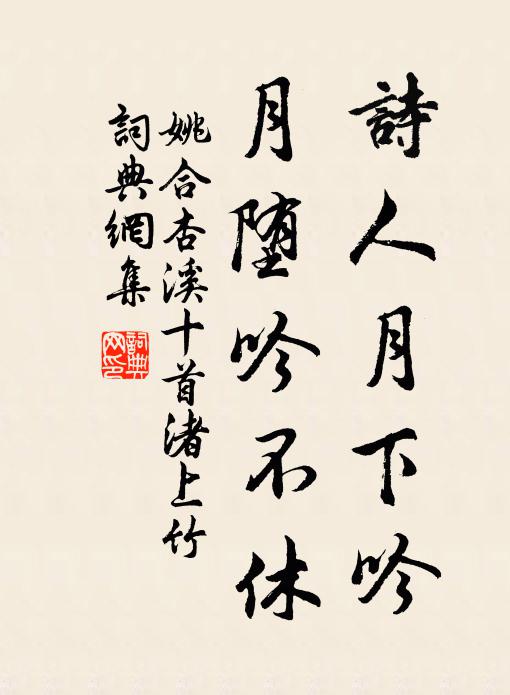 詩人月下吟
月堕吟不休
姚合杏溪十首渚上竹
詞典網集
詞典網印